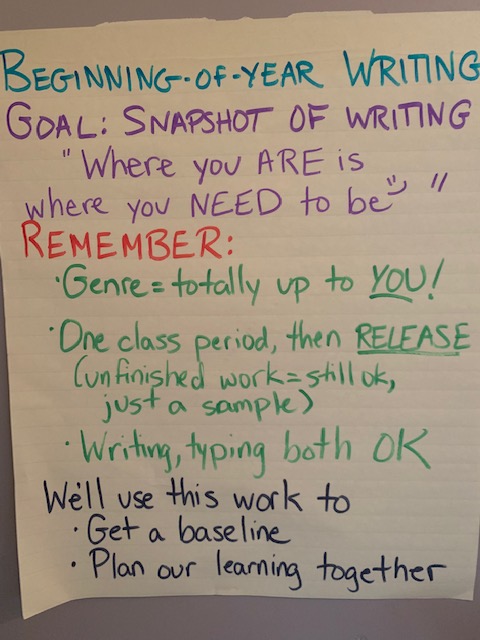 BEGINNING-OF-YEAR WRITING
GOAL: SNAPSHOT OF WRITING
"Where you ARE is
where you NEED to be"
REMEMBER:
· Genre = totally up to YOU!
· One class period, then RELEASE
(unfinished work = still ok,
just a sample)
· Writing, typing both OK
We'll use this work to
· Get a baseline
· Plan our learning together